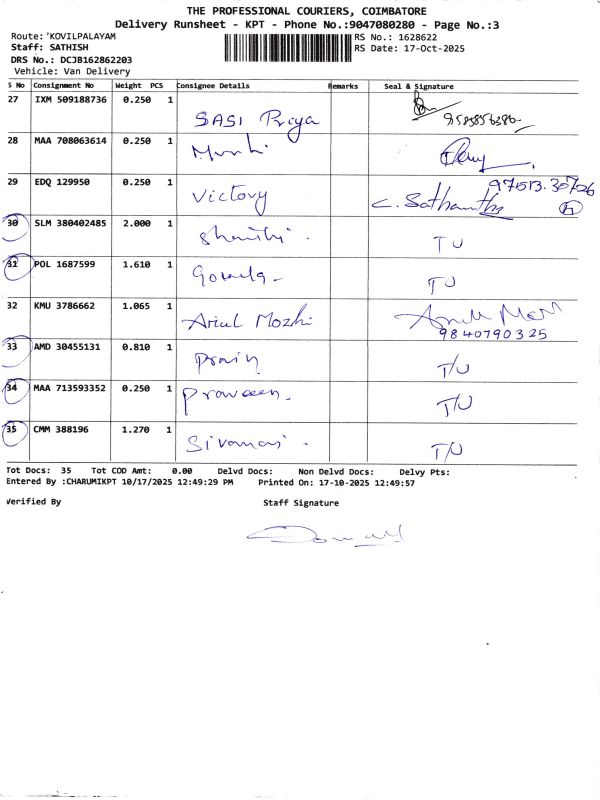 THE PROFESSIONAL COURIERS, COIMBATORE
Delivery Runsheet - KPT - Phone No.:9047080280 - Page No.:3
Route: 'KOVILPALAYAM
RS No.: 1628622
Staff: SATHISH
RS Date: 17-Oct-2025
DRS No.: DCJB162862203
Vehicle: Van Delivery
S No Consignment No Weight PCS Consignee Details Remarks Seal & Signature
27 IXM 509188736 0.250 1 SASI Priya
28 MAA 708063614 0.250 1
29 EDQ 129950 0.250 1 Victory C. Sathantha 97513.30726
30 SLM 380402485 2.000 1 Shanthi. TU
31 POL 1687599 1.610 1 TU
32 KMU 3786662 1.065 1 Arul Mozhi 9840790325
33 AMD 30455131 0.810 1 T/U
34 MAA 713593352 0.250 1 Praveen. T/U
35 CMM 388196 1.270 1 T/U
Tot Docs: 35 Tot COD Amt: 0.00 Delvd Docs: Non Delvd Docs: Delvy Pts:
Entered By :CHARUMIKPT 10/17/2025 12:49:29 PM Printed On: 17-10-2025 12:49:57
Verified By Staff Signature